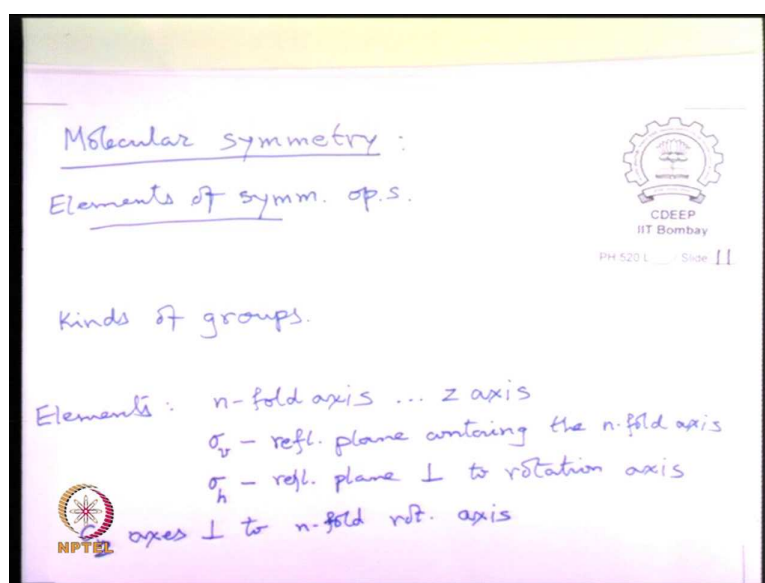 Molecular symmetry :
Elements of symm. op.s.
CDEEP
IIT Bombay
PH 520 L Slide 11
Kinds of groups.
Elements : n-fold axis ... z axis
σv - refl. plane containg the n-fold axis
σh - refl. plane ⊥ to rotation axis
C2 axes ⊥ to n-fold rot. axis
NPTEL